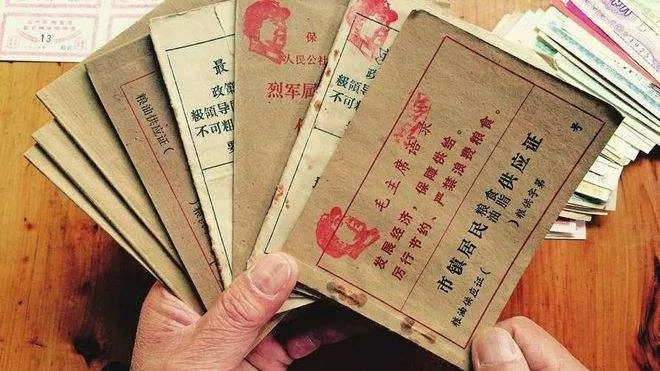 13
粮油供应证）
最
政策
級領导同
不可粗
要
保
人民公社
烈军属
級領导
不可粗
毛主席语录
发展经济，保障供给。
厉行节约、严禁浪费粮食。
市镇居民粮食油脂供应证
粮油供应证（ ）粮供字第 号